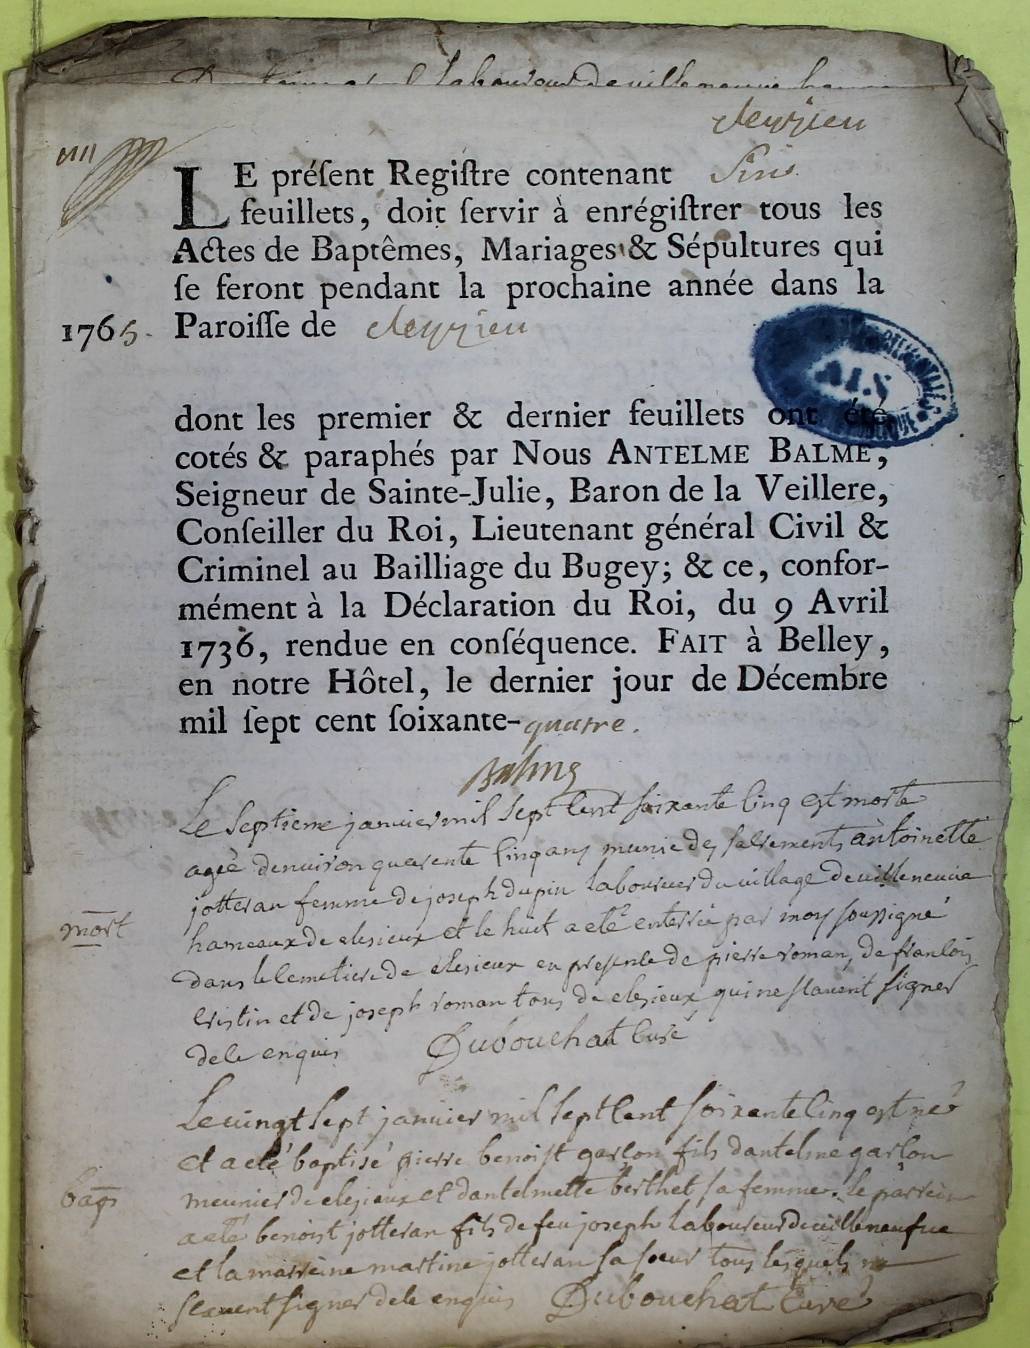 laboureur de villeneuve
cleyzieu
LE préſent Regiſtre contenant Sinq
feuillets, doit ſervir à enrégiſtrer tous les
Actes de Baptêmes, Mariages & Sépultures qui
ſe feront pendant la prochaine année dans la
1765. Paroiſſe de cleyzieu
AIN
dont les premier & dernier feuillets ont été
cotés & paraphés par Nous ANTELME BALME,
Seigneur de Sainte-Julie, Baron de la Veillere,
Conſeiller du Roi, Lieutenant général Civil &
Criminel au Bailliage du Bugey; & ce, confor-
mément à la Déclaration du Roi, du 9 Avril
1736, rendue en conſéquence. FAIT à Belley,
en notre Hôtel, le dernier jour de Décembre
mil ſept cent ſoixante-quatre.
Balme
Le septieme janvier mil sept cent soixante cinq est morte
agée denuiron quarente cinq ans munie des sacrements antoinette
jotteran femme de joseph dupin laboureur du village de villeneuve
mort hameaux de clesieux et le huit a eté enterrée par moy soussigné
dans le cemetiere de clesieux en presence de pierre roman, de francois
cristin et de joseph roman tous de clesieux qui ne scavent signer
de ce enquis Dubouchat curé
Le vingt sept janvier mil sept cent soixante cinq est né
et a eté baptisé pierre benoist garcon fils dantelme garcon
bap meunier de clesieux et dantelmette berthet sa femme. le parrein
a eté benoist jotteran fils de feu joseph laboureur de villeneufue
et la marreine martine jotteran sa soeur tous lesquels ne
scavent signer de ce enquis Dubouchat curé